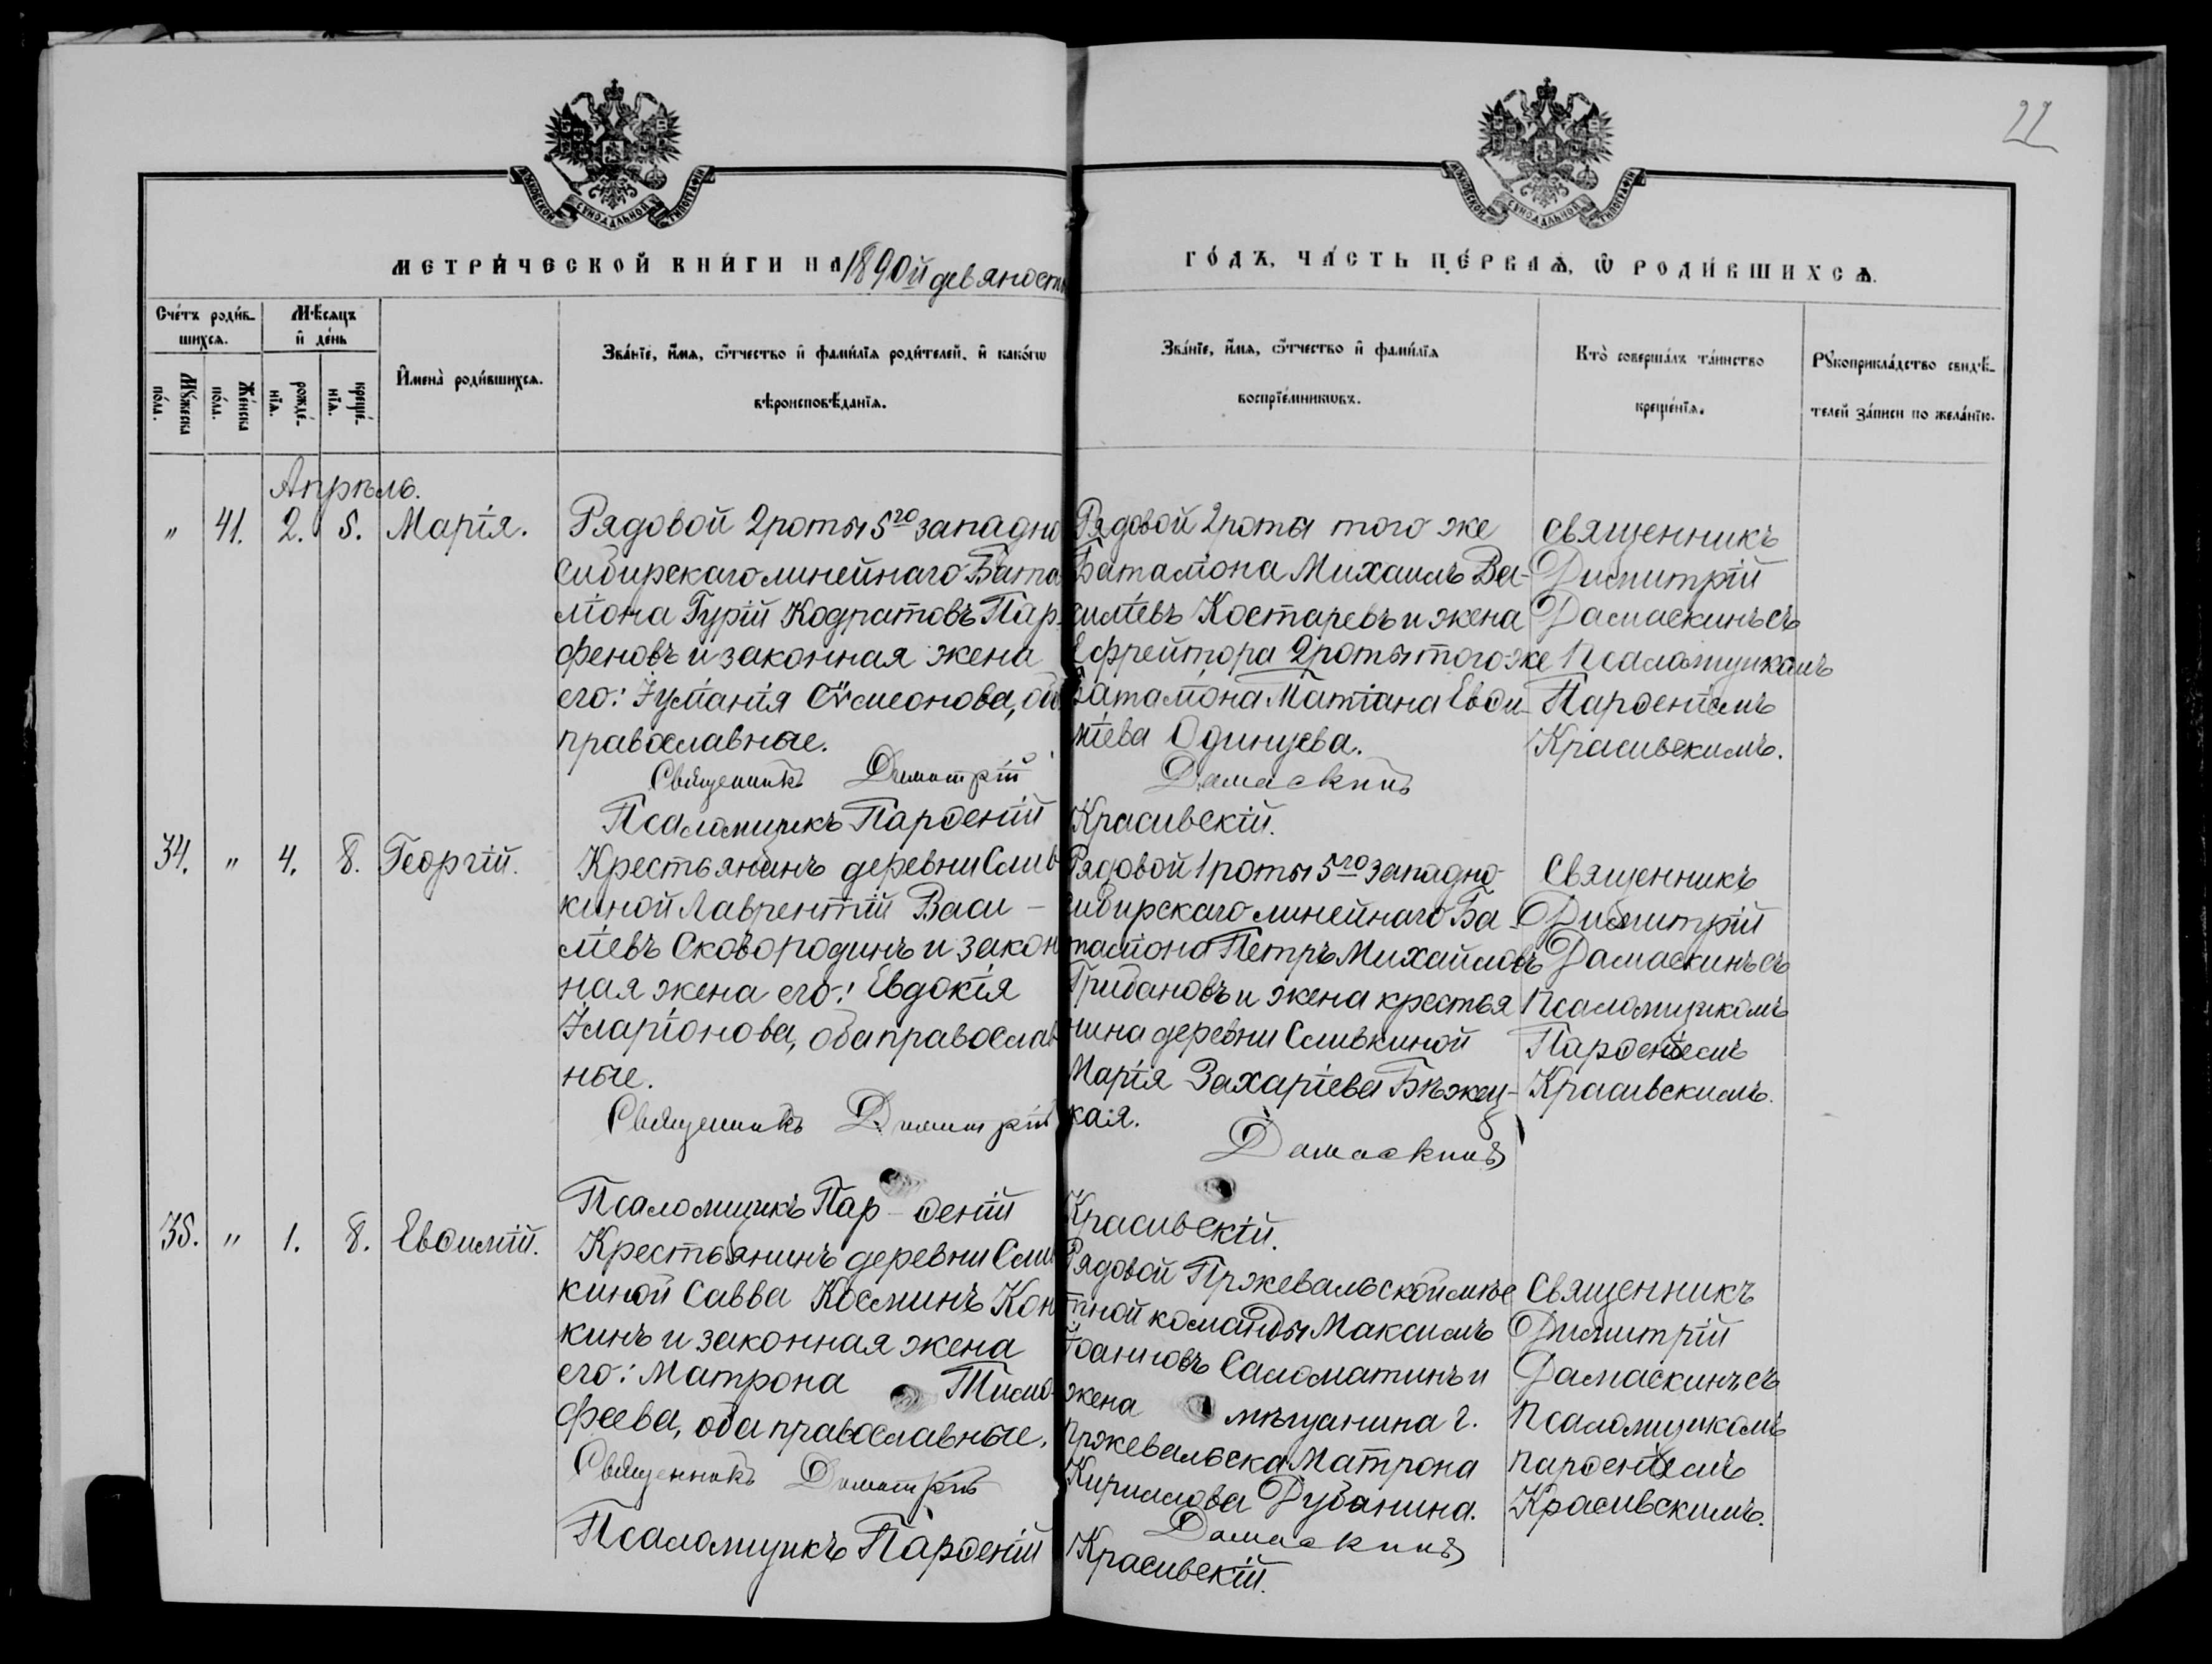 22
МОСКОВСКОЙ СѴНОДАЛЬНОЙ ТИПОГРАФІИ
МОСКОВСКОЙ СѴНОДАЛЬНОЙ ТИПОГРАФІИ
МЕТРИ́ЧЕСКОЙ КНИ́ГИ НА 1890й девяносты
ГО́ДЪ, ЧА́СТЬ ПЕ́РВАѦ, Ѿ РОДИ́ВШИХСѦ.
Сче́тъ роди́в-
шихсѧ.
Мѣ́сѧцъ
и҆ де́нь
Мꙋ́жеска
по́ла.
Же́нска
по́ла.
рожде́-
нїѧ.
креще́-
нїѧ.
И҆мена̀ роди́вшихсѧ.
Зва́нїе, и҆́мѧ, ѻ҆́тчество и҆ фами́лїѧ роди́телей, и҆ како́гѡ
вѣроисповѣ́данїѧ.
Зва́нїе, и҆́мѧ, ѻ҆́тчество и҆ фами́лїѧ
воспрїе́мникѡвъ.
Кто̀ соверша́лъ та́инство
креще́нїѧ.
Рꙋкоприкла́дство свидѣ́-
телей за́писи по жела́нїю.
Апрѣль.
" 41. 2. 5. Марія.
Рядовой 2 роты 5го западно
Сибирскаго линейнаго Бата
ліона Гурій Кодратовъ Пар-
феновъ и законная жена
его: Іуліанія Сѵмеонова, об
православные.
Священникъ Димитрій
Псаломщикъ Парѳеній
Рядовой 2 роты того же
Баталіона Михаилъ Ва-
силіевъ Костаревъ и жена
Ефрейтора 2 роты того-же
Баталіона Татіана Евѳи-
міева Одинцева.
Дамаскинъ
Красивскій.
Священникъ
Димитрій
Дамаскинъ съ
Псаломщикомъ
Парѳеніемъ
Красивскимъ.
34. " 4. 8. Георгій.
Крестьянинъ деревни Слив
киной Лаврентій Васи-
ліевъ Сковородинъ и закон
ная жена его: Евдокія
Іларіонова, оба православ
ные.
Священникъ Димитрій
Псаломщикъ Пар-ѳеній
Рядовой 1 роты 5го западно-
сибирскаго линейнаго Ба-
таліона Петръ Михайловъ
Грибановъ и жена крестья
нина деревни Сливкиной
Марія Захаріева Бѣжец-
кая.
Дамаскинъ
Красивскій.
Священникъ
Димитрій
Дамаскинъ съ
Псаломщикомъ
Парѳеніемъ
Красивскимъ.
35. " 1. 8. Евѳимій.
Крестьянинъ деревни Слив
киной Савва Косминъ Кон
кинъ и законная жена
его: Матрона Тимо-
феева, оба православные.
Священникъ Димитрій
Псаломщикъ Парѳеній
Рядовой Пржевальской мѣс
тной команды Максимъ
Іоанновъ Саломатинъ и
жена мѣщанина г.
Пржевальска Матрона
Кириллова Дубанина.
Дамаскинъ
Красивскій.
Священникъ
Димитрій
Дамаскинъ съ
Псаломщикомъ
Парѳеніемъ
Красивскимъ.